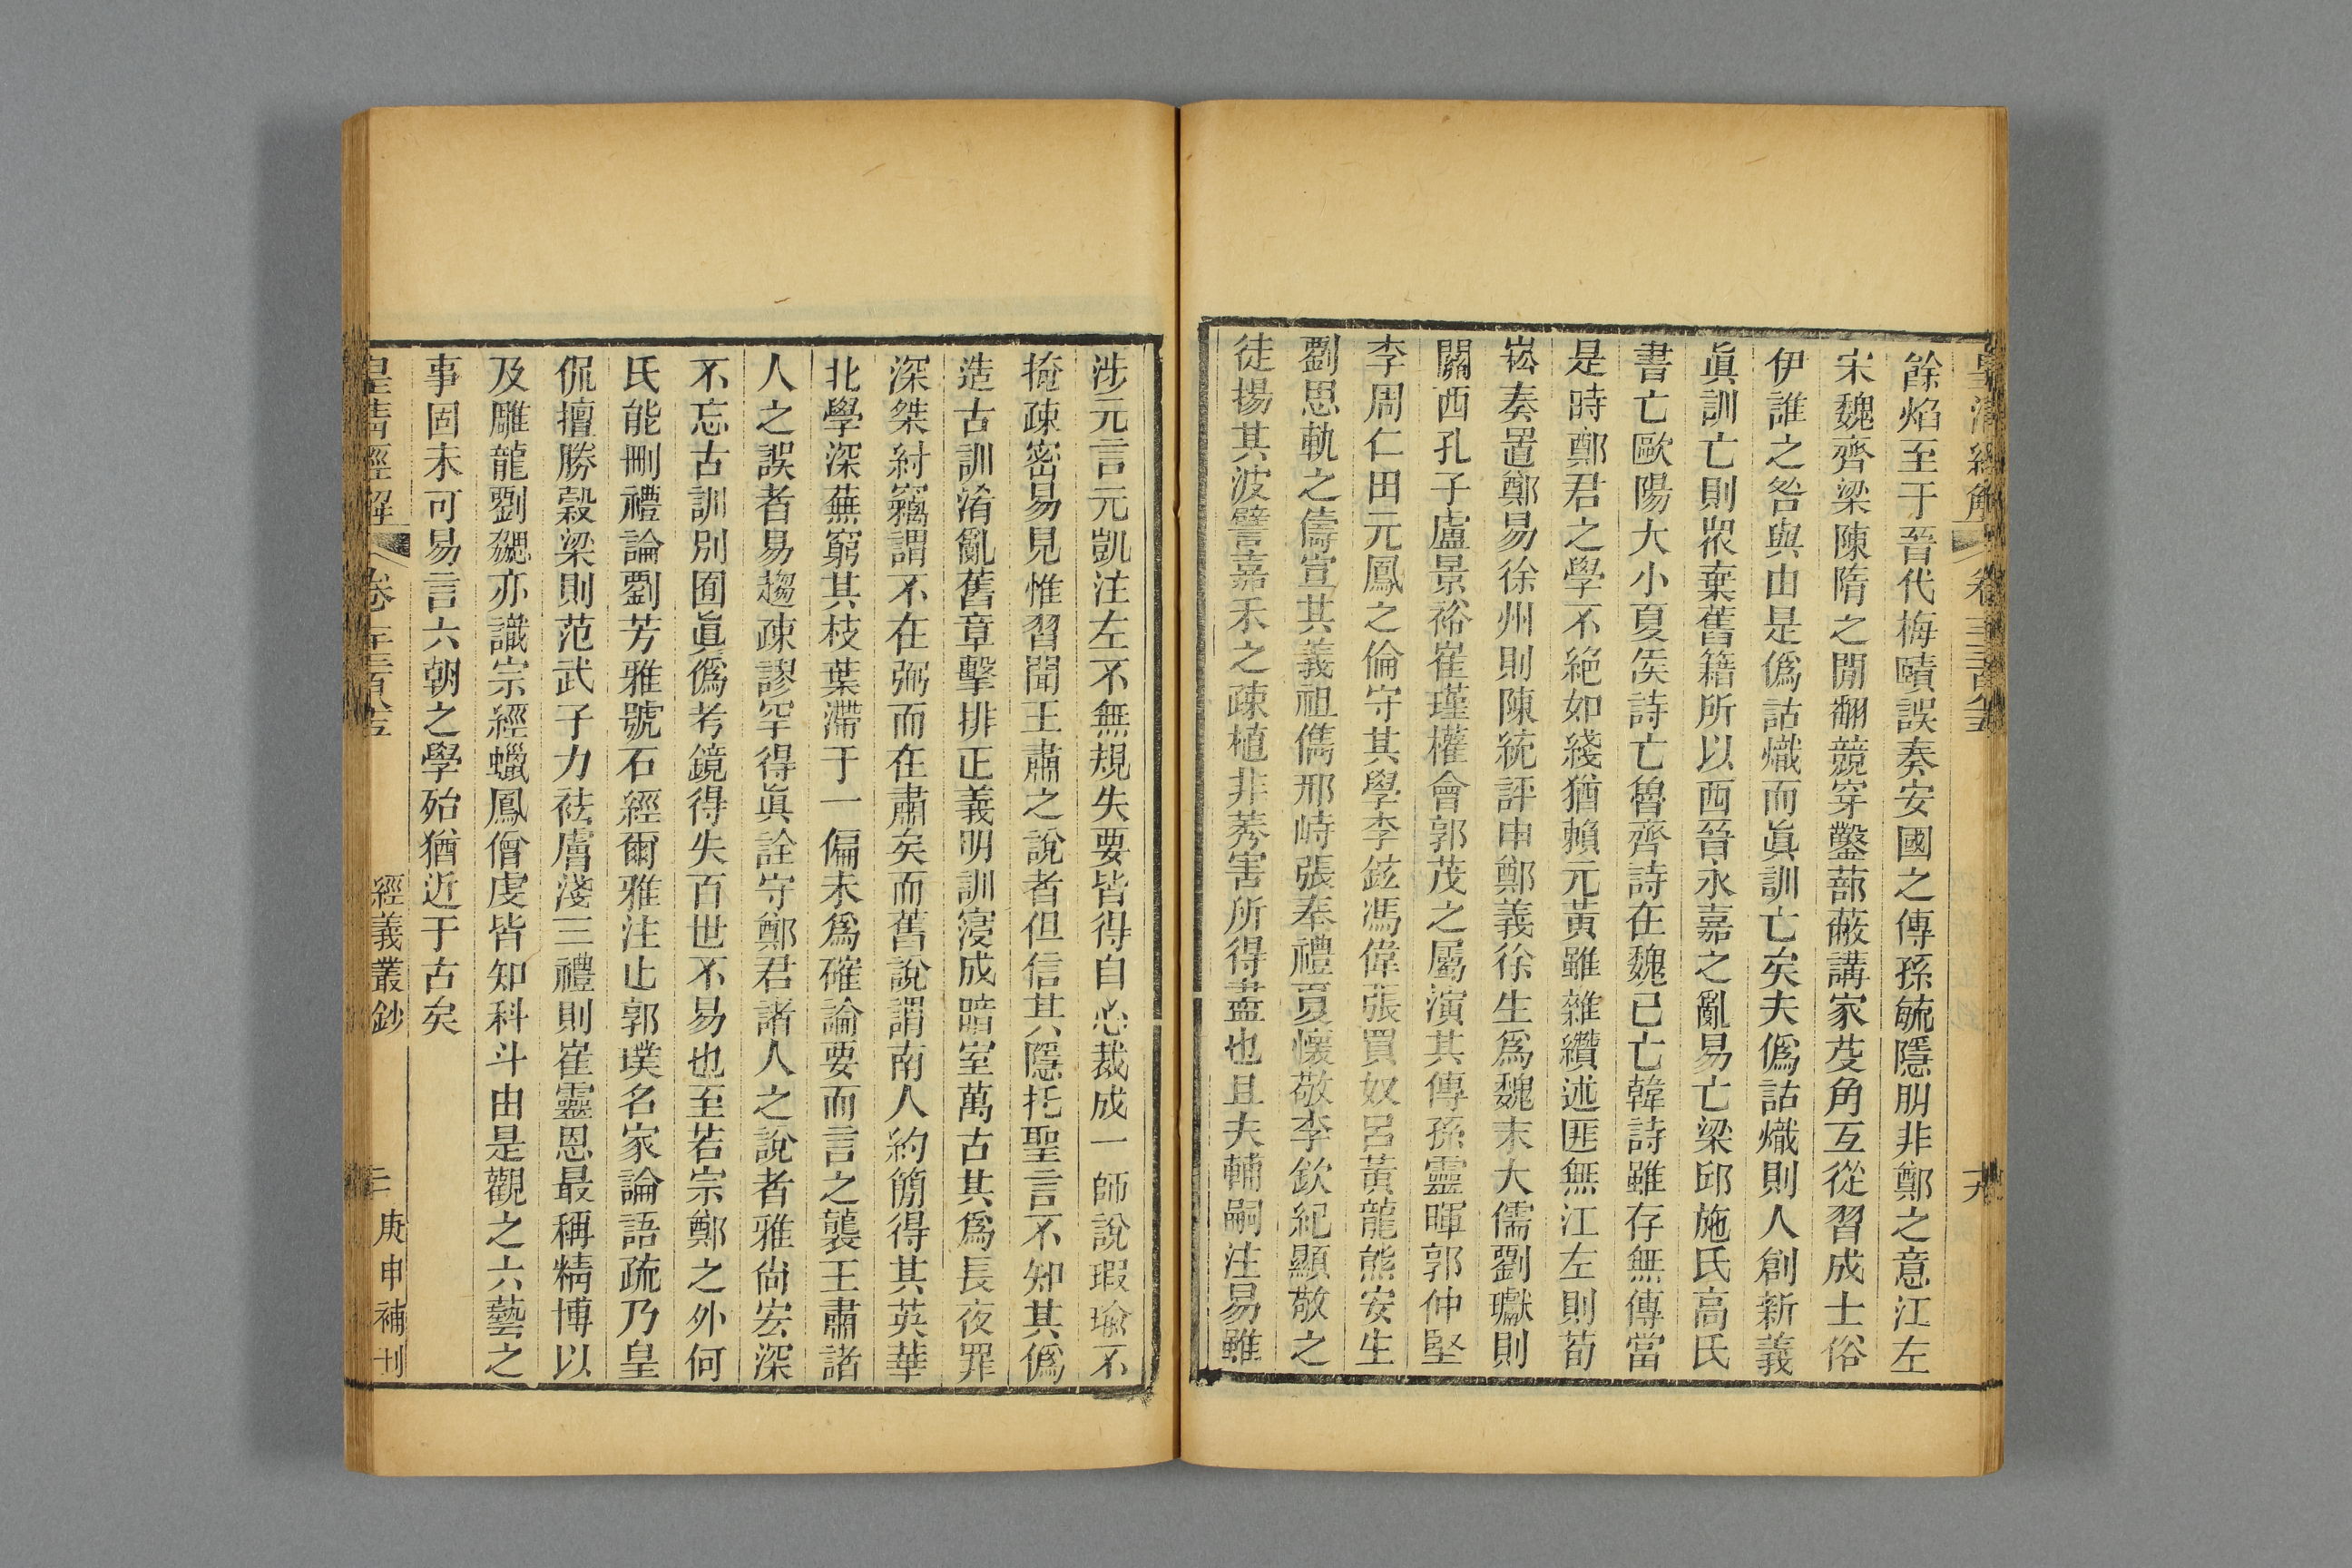 皇清經解 卷一千三百八十五 十九
餘焰至于晉代梅賾誤奏安國之傳孫毓隱朋非鄭之意江左
宋魏齊梁陳隋之間翻競穿鑿蔀蔽講家芟角互從習成士俗
伊誰之咎與由是僞詁熾而眞訓亡矣夫僞詁熾則人創新義
眞訓亡則衆棄舊籍所以西晉永嘉之亂易亡梁邱施氏高氏
書亡歐陽大小夏矦詩亡魯齊詩在魏已亡韓詩雖存無傳當
是時鄭君之學不絶如綫猶賴元黃雖雜纘述匪無江左則荀
崧奏置鄭易徐州則陳統評申鄭義徐生爲魏末大儒劉獻則
關西孔子盧景裕崔瑾權會郭茂之屬演其傳孫靈暉郭仲堅
李周仁田元鳳之倫守其學李鉉馮偉張買奴呂黃龍熊安生
劉思軌之儔宣其義祖儁邢峙張奉禮夏懷敬李欽紀顯敬之
徒揚其波譬嘉禾之疎植非莠害所得盡也且夫輔嗣注易雖
涉元言元凱注左不無規失要皆得自心裁成一師說瑕瑜不
掩疎密易見惟習聞王肅之說者但信其隱托聖言不知其僞
造古訓淆亂舊章擊排正義明訓寖成暗室萬古其爲長夜罪
深桀紂竊謂不在弼而在肅矣而舊說謂南人約簡得其英華
北學深蕪窮其枝葉滯于一偏未爲確論要而言之襲王肅諸
人之誤者易趨疎謬罕得眞詮守鄭君諸人之說者雅尚宏深
不忘古訓別囿眞僞考鏡得失百世不易也至若宗鄭之外何
氏能刪禮論劉芳雅號石經爾雅注止郭璞名家論語疏乃皇
侃擅勝穀梁則范武子力袪膚淺三禮則崔靈恩最稱精博以
及雕龍劉勰亦識宗經蠟鳳僧虔皆知科斗由是觀之六藝之
事固未可易言六朝之學殆猶近于古矣
皇清經解 卷一千三百八十五 經義叢鈔 二十 庚申補刊